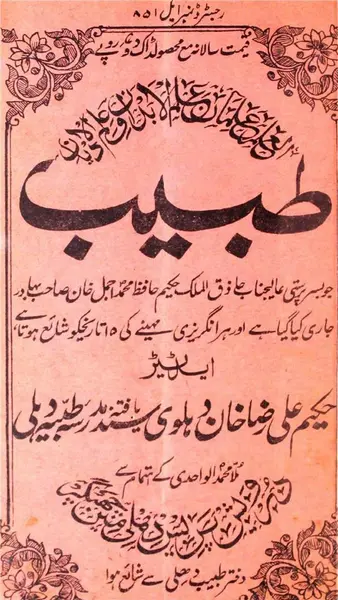 رجسٹرڈ نمبر ایل ۸۵۱
قیمت سالانہ مع محصولڈاک دو روپے
العلم علمان علم الابدان و علم الادیان
طبیب
جو بسرپرستی عالیجناب حاذق الملک حکیم حافظ محمد اجمل خان صاحب بہادر
جاری کیا گیا ہے اور ہر انگریزی مہینے کی ۱۵ تاریخکو شائع ہوتا ہے
ایڈیٹر
حکیم علی رضا خان دہلوی سند یافتہ مدرسہ طبیہ دہلی
ملا محمد الواحدی کے اہتمام سے
پریس دہلی مین چھپکر
دفتر طبیب دہلی سے شائع ہوا